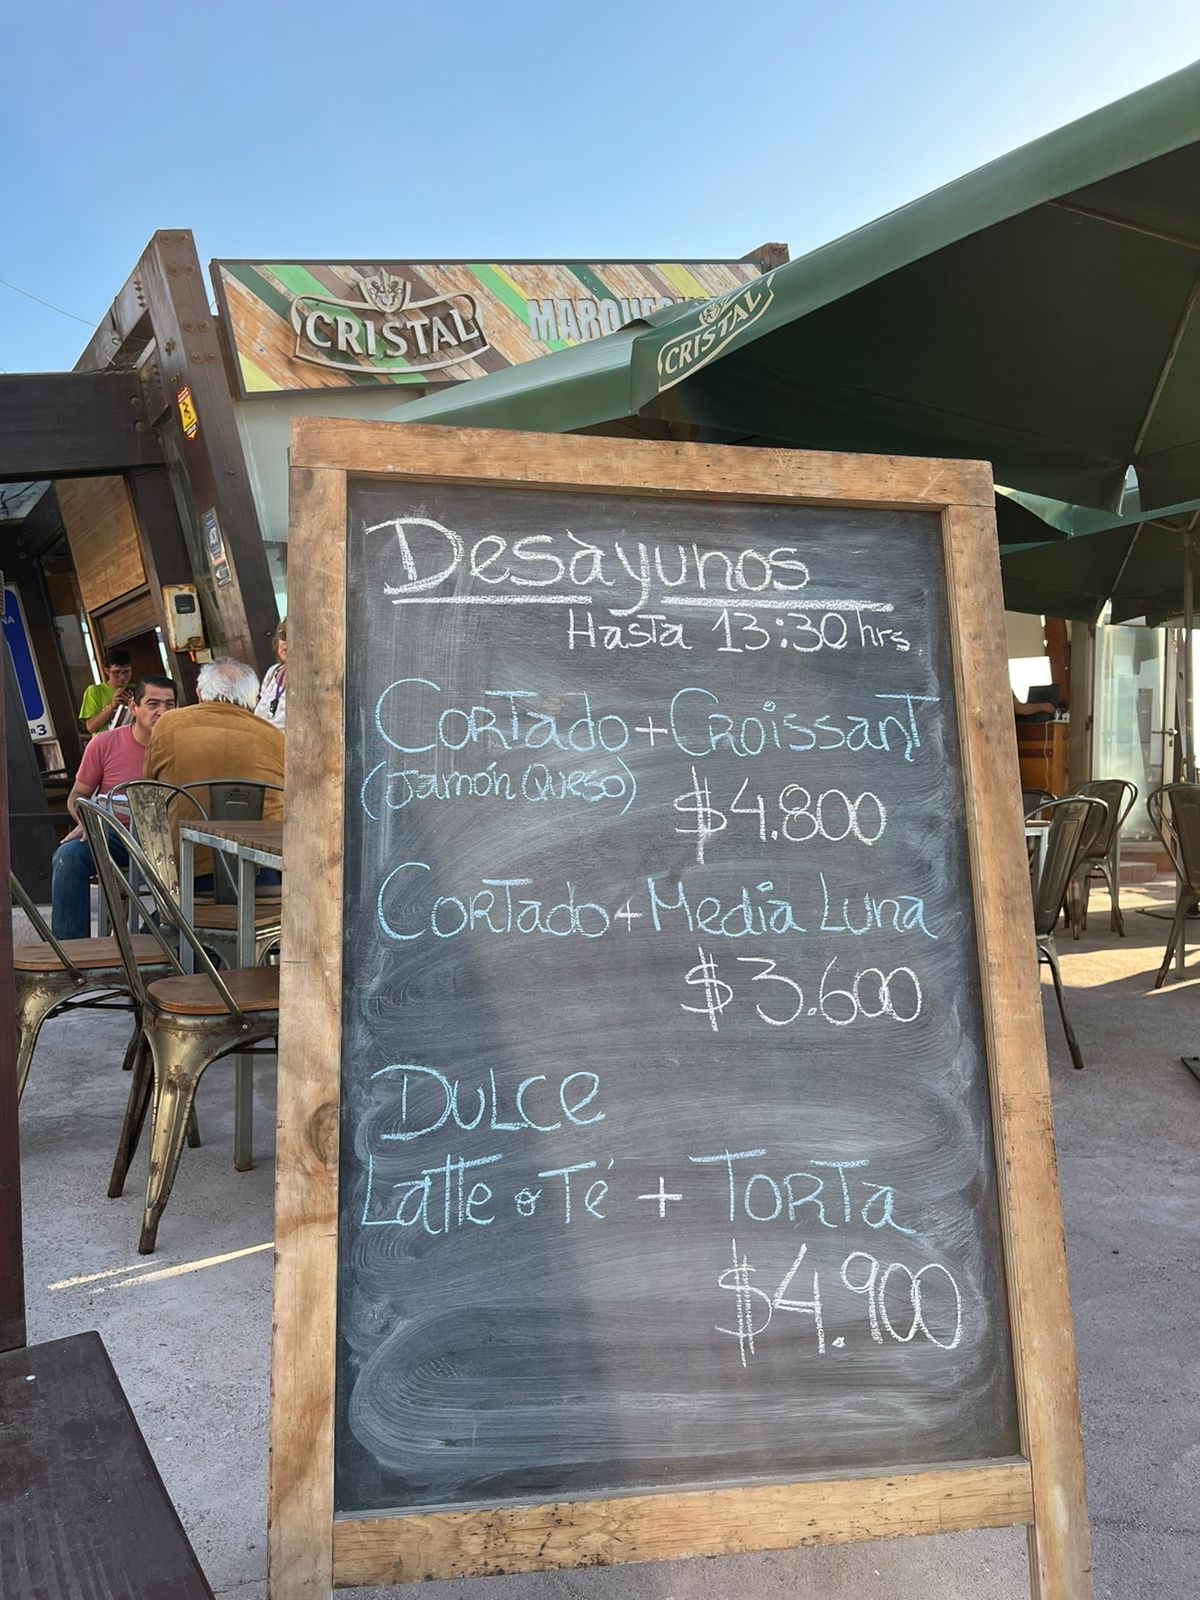 CRISTAL
CRISTAL
Desayunos
Hasta 13:30 hrs.
Cortado + Croissant
(Jamón Queso)
$4.800
Cortado + Media Luna
$3.600
DULCE
Latte o Té + Torta
$4.900